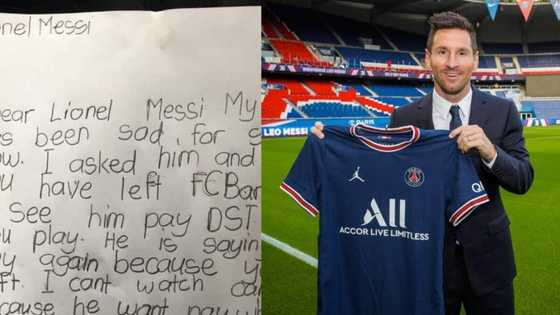 nel Messi
ear Lionel Messi My
s been sad for
ow. I asked him and
ou have left FCBar
See him pay DST
u play. He is sayin
y again because y
ft. I cant watch ca
cause he want pay
LEO MESSI
PARIS
ALL
ACCOR LIVE LIMITLESS